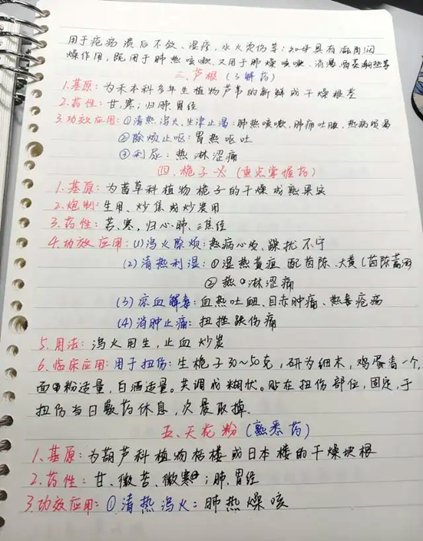 用于疮疡溃后不敛、湿疹、水火烫伤等;
燥作用,既用于肺热咳嗽,又用于肺燥咳嗽
三、芦根(了解药)
1.基原:为禾本科多年生植物芦苇的新鲜或干燥根茎
2.药性:甘、寒,归肺胃经
3.功效应用:①清热泻火,生津止渴:肺热咳嗽,肺痈吐脓,热病烦渴
②除烦止呕:胃热呕吐
③利尿:热淋涩痛
四、栀子(重点掌握药)
1.基原:为茜草科植物栀子的干燥成熟果实
2.炮制:生用、炒焦或炒炭用
3.药性:苦、寒,归心肺、三焦经
4.功效应用:(1)泻火除烦:热病心烦、躁扰不宁
(2)清热利湿:①湿热黄疸 配茵陈、大黄(茵陈蒿
②热淋涩痛
(3)凉血解毒:血热吐衄、目赤肿痛、热毒疮疡
(4)消肿止痛:扭挫跌伤痛
5.用法:泻火用生,止血炒炭
6.临床应用:用于扭伤:生栀子30~50克,研为细末,鸡蛋清一个,
面粉适量,白酒适量。共调成糊状。贴在扭伤部位,固定,于
扭伤当日敷药休息,次晨取掉
五、天花粉(熟悉药)
1.基原:为葫芦科植物栝楼或日本楼的干燥块根
2.药性:甘、微苦、微寒;肺、胃经
3.功效应用:①清热泻火:肺热燥咳